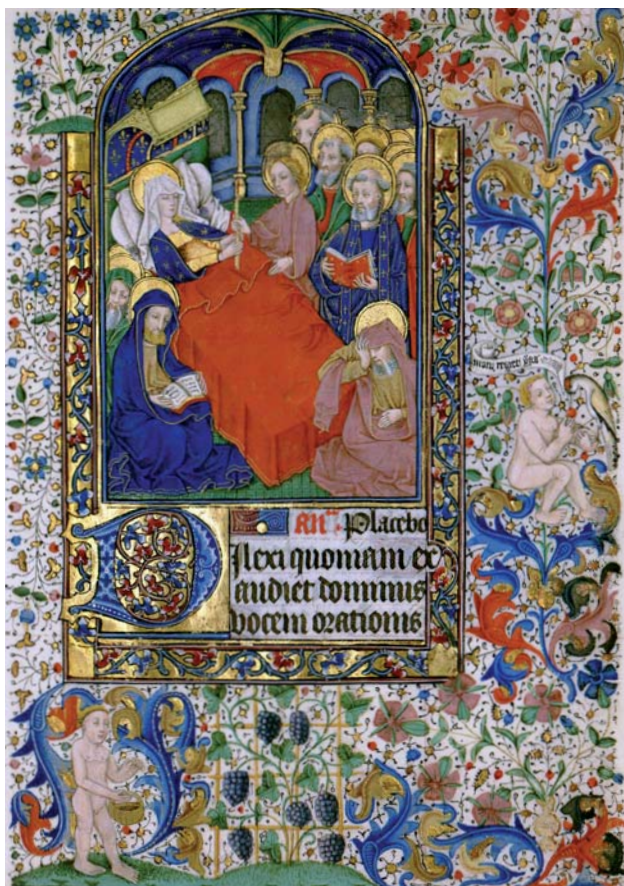 An̄. Placebo
Dilexi quoniam ex
audiet dominus
vocem orationis